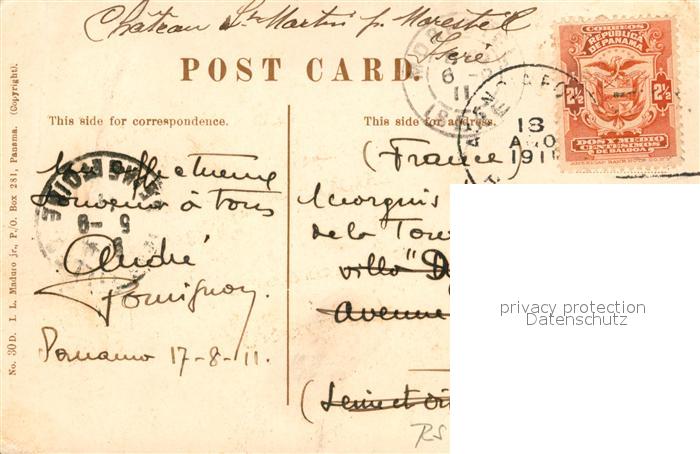 Château St Martin p. Morestel
Isère
POST CARD.
This side for correspondence.
This side for address.
CORREOS
REPUBLICA
DE PANAMA
2½ 2½
DOS Y MEDIO
CENTESIMOS
DE BALBOA
18
AGO
1911
6
11
(France)
souvenir à tous
André
Panama 17-8-11.
de la Tour
villa "
Avenue
(Seine et Oi
RS
5
No. 30D. I. L. Maduro jr., P./O. Box 281, Panama. (Copyright).
privacy protection
Datenschutz